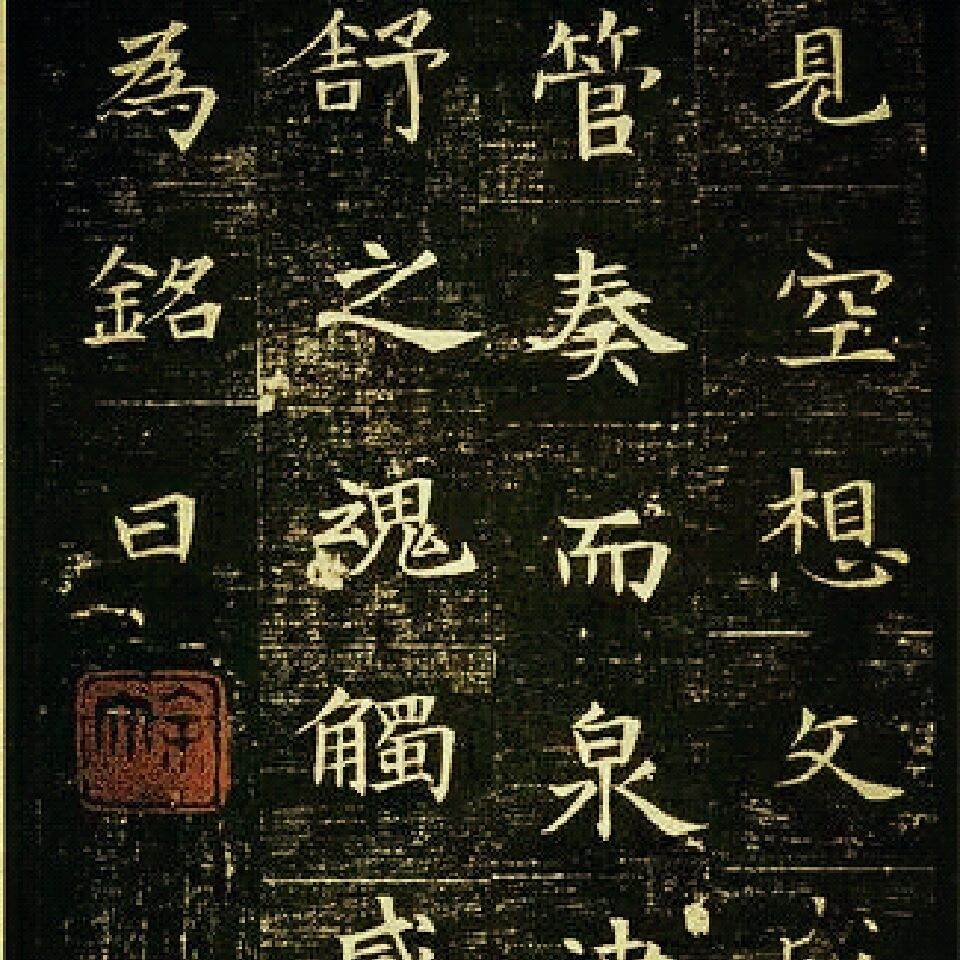 見空想文
管奏而泉
舒之魂觸感
為銘曰